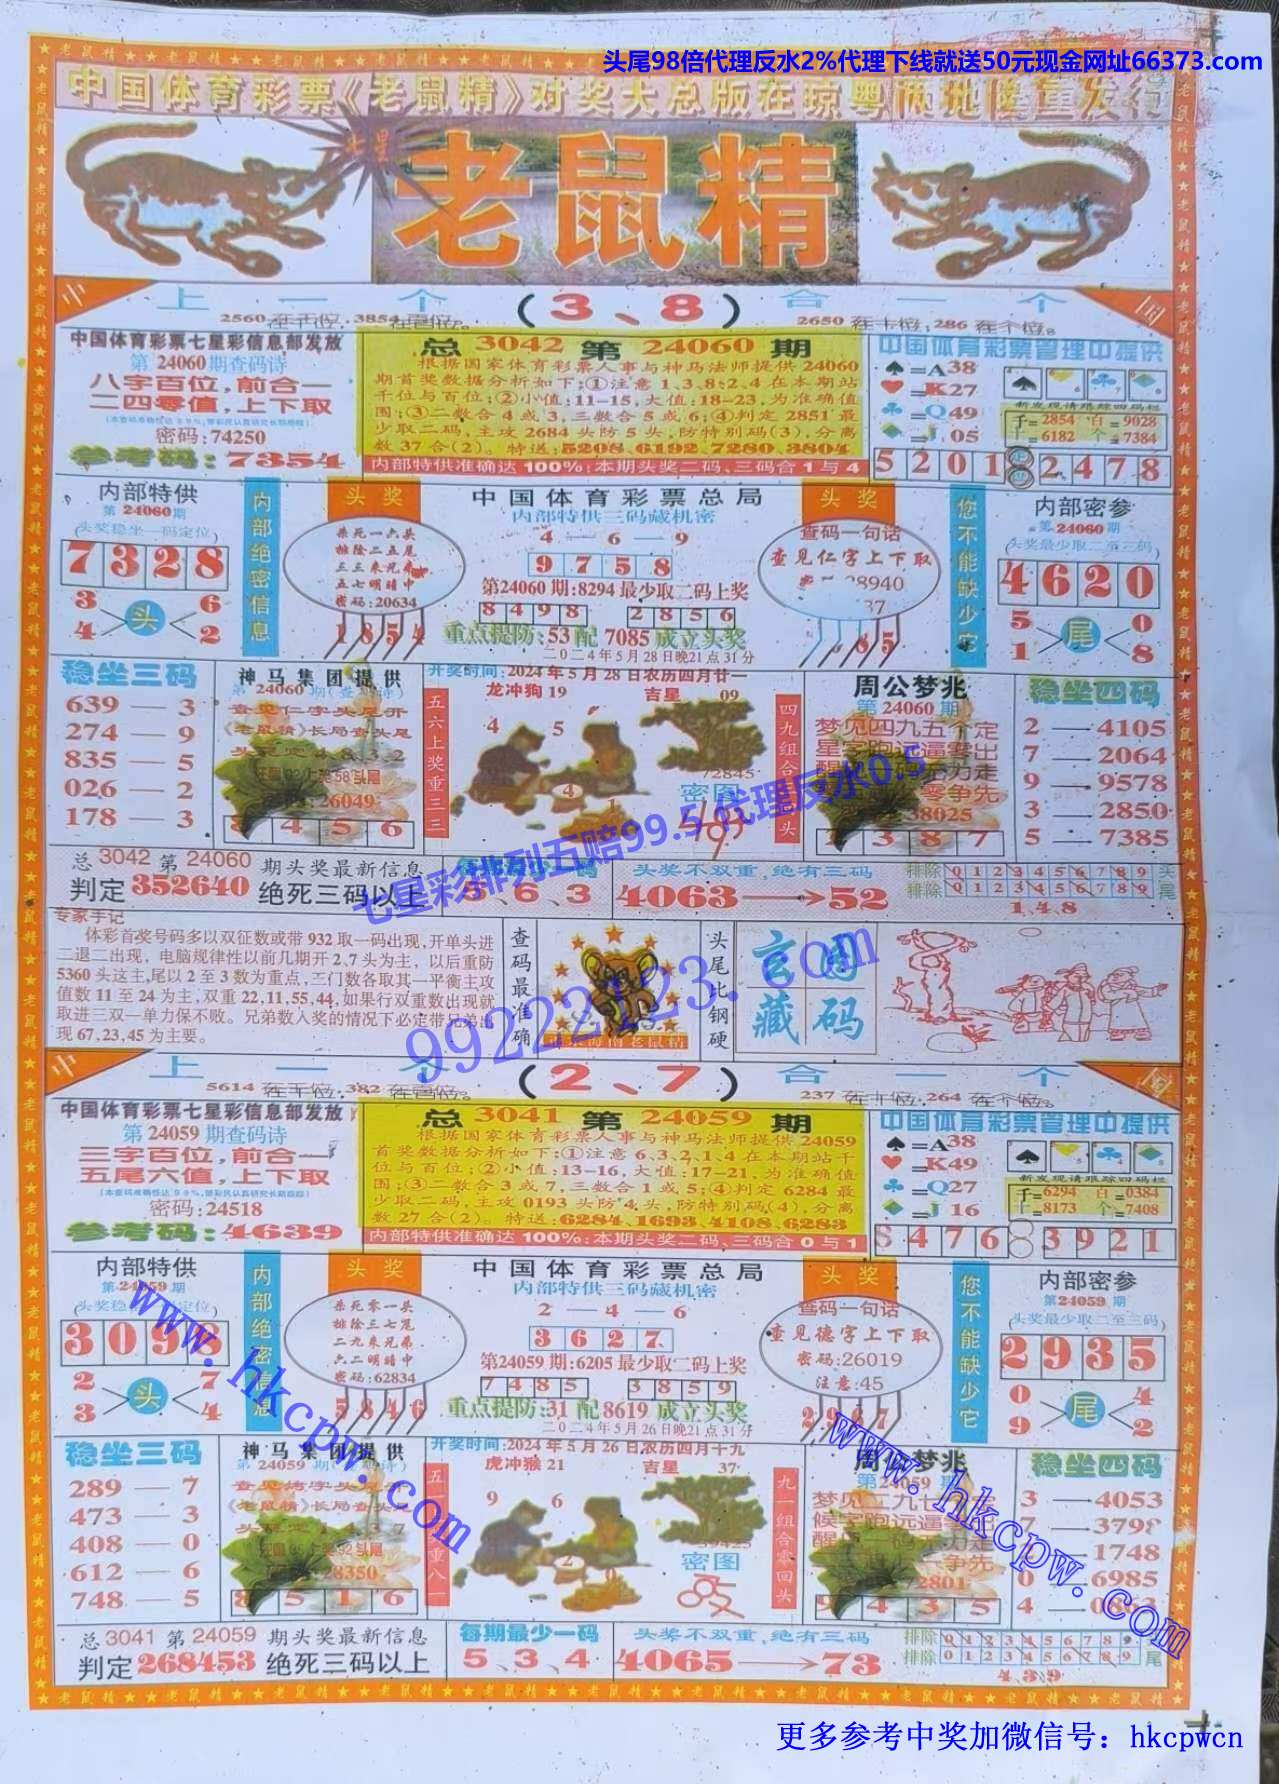 头尾98倍代理反水2%代理下线就送50元现金网址66373.com
中国体育彩票《老鼠精》对奖大总版在琼粤两地隆重发行
七星
老鼠精
上一个(3、8)合一个
2650在十位,286在个位。
中国体育彩票七星彩信息部发放
第24060期查码诗
八字百位,前合一
二四零值,上下取
密码:74250
参考码:7354
总3042第24060期
根据国家体育彩票人事与神马法师提供24060
期首奖数据分析如下:①注意1、3、8、2、4在本期站
千位与百位;②小值:11-15,大值:18-23,为准确值
围;③二数合4或3,三数合5或6;④判定2851最
少取二码,主攻2684头防5头,防特别码(3),分离
数37合(2)。特送:5208、6192、7280、3804
内部特供准确达100%:本期头奖二码、三码合1与4
中国体育彩票管理中提供
♠=A38
♥=K27
♣=Q49
♦=J.05
新发现请跟踪四码栏
千=2854 百=9028
十=6182 个=7384
5201 2478
内部特供
第24060期
(头奖稳坐一码定位)
7328
3 6
头
4 2
内部绝密信息
头奖
杀死一六头
排除二五尾
三三来兄弟
五七明暗中
密码:20634
1854
中国体育彩票总局
内部特供三码藏机密
4—6—9
9758
第24060期:8294最少取二码上奖
8498 2856
重点提防:53配7085成立头奖
二0二4年5月28日晚21点31分
头奖
查码一句话
查见仁字上下取
28940
37
85
您不能缺少它
内部密参
第24060期
(头奖最少取二至三码)
4620
5 0
尾
1 8
稳坐三码
639—3
274—9
835—5
026—2
178—3
神马集团提供
第24060期(查码诗)
查见仁字头尾开
《老鼠精》长局查头尾
26049
8456
五六上奖重三三
开奖时间:2024年5月28日农历四月廿一
龙冲狗19 吉星 09
4 5
4
1
72845
密图
四九组合 头
周公梦兆
第24060期
梦见四九五个定
星字跑远逼零出
38025
387
稳坐四码
2—4105
7—2064
9—9578
3—2850
5—7385
总3042第24060期头奖最新信息
判定352640绝死三码以上
每期最少一码
5、6、3
头奖不双重,绝有三码
4063→52
排除0123456789头
排除0123456789尾
1、4、8
专家手记
体彩首奖号码多以双征数或带932取一码出现,开单头进
二退二出现,电脑规律性以前几期开2、7头为主,以后重防
5360头这主,尾以2至3数为重点,三门数各取其一平衡主攻
值数11至24为主,双重22,11,55,44,如果行双重数出现就
取进三双一单力保不败。兄弟数入奖的情况下必定带兄弟出
现67,23,45为主要。
查码最准确
正宗海南老鼠精
头尾比钢硬
玄图藏码
七星彩排列五赔99.5代理反水0.5
99222123.com
上一个(2、7)合一个
237在十位,264在个位。
中国体育彩票七星彩信息部发放
第24059期查码诗
三字百位,前合一
五尾六值,上下取
密码:24518
参考码:4639
总3041第24059期
根据国家体育彩票人事与神马法师提供24059
首奖数据分析如下:①注意6、3、2、1、4在本期站千
位与百位;②小值:13-16,大值:17-21,为准确值
围;③二数合3或7,三数合1或5;④判定6284最
少取二码,主攻0193头防4头,防特别码(4),分离
数27合(2)。特送:6284、1693、4108、6283
内部特供准确达100%:本期头奖二码、三码合0与1
中国体育彩票管理中提供
♠=A38
♥=K49
♣=Q27
♦=J16
新发现请跟踪四码栏
千=6294 百=0384
十=8173 个=7408
8476 3921
内部特供
第24059期
3098
2 7
头
3 4
内部绝密信息
头奖
杀死零一头
排除三七尾
二九来兄弟
六二明暗中
密码:62834
5846
中国体育彩票总局
内部特供三码藏机密
2—4—6
3627
第24059期:6205最少取二码上奖
7485 3859
重点提防:31配8619成立头奖
二0二4年5月26日晚21点31分
头奖
查码一句话
查见德字上下取
密码:26019
注意:45
2947
您不能缺少它
内部密参
第24059期
(头奖最少取二至三码)
2935
0 4
尾
9 2
稳坐三码
289—7
473—3
408—0
612—6
748—5
神马集团提供
28350
8516
开奖时间:2024年5月26日农历四月十九
虎冲猴21 吉星 37
9 6
密图
九一组合零回头
周公梦兆
第24059期
9435
稳坐四码
3—4053
7—3798
1748
0—6985
4—0863
总3041第24059期头奖最新信息
判定268453绝死三码以上
每期最少一码
5、3、4
头奖不双重,绝有三码
4065→73
排除0123456789
排除0123456789尾
4、3、9
www.hkcpw.com
www.hkcpw.com
更多参考中奖加微信号：hkcpwcn